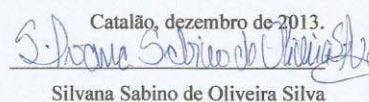 Catalão, dezembro de 2013.
Sabino de Oliveira
Silvana Sabino de Oliveira Silva